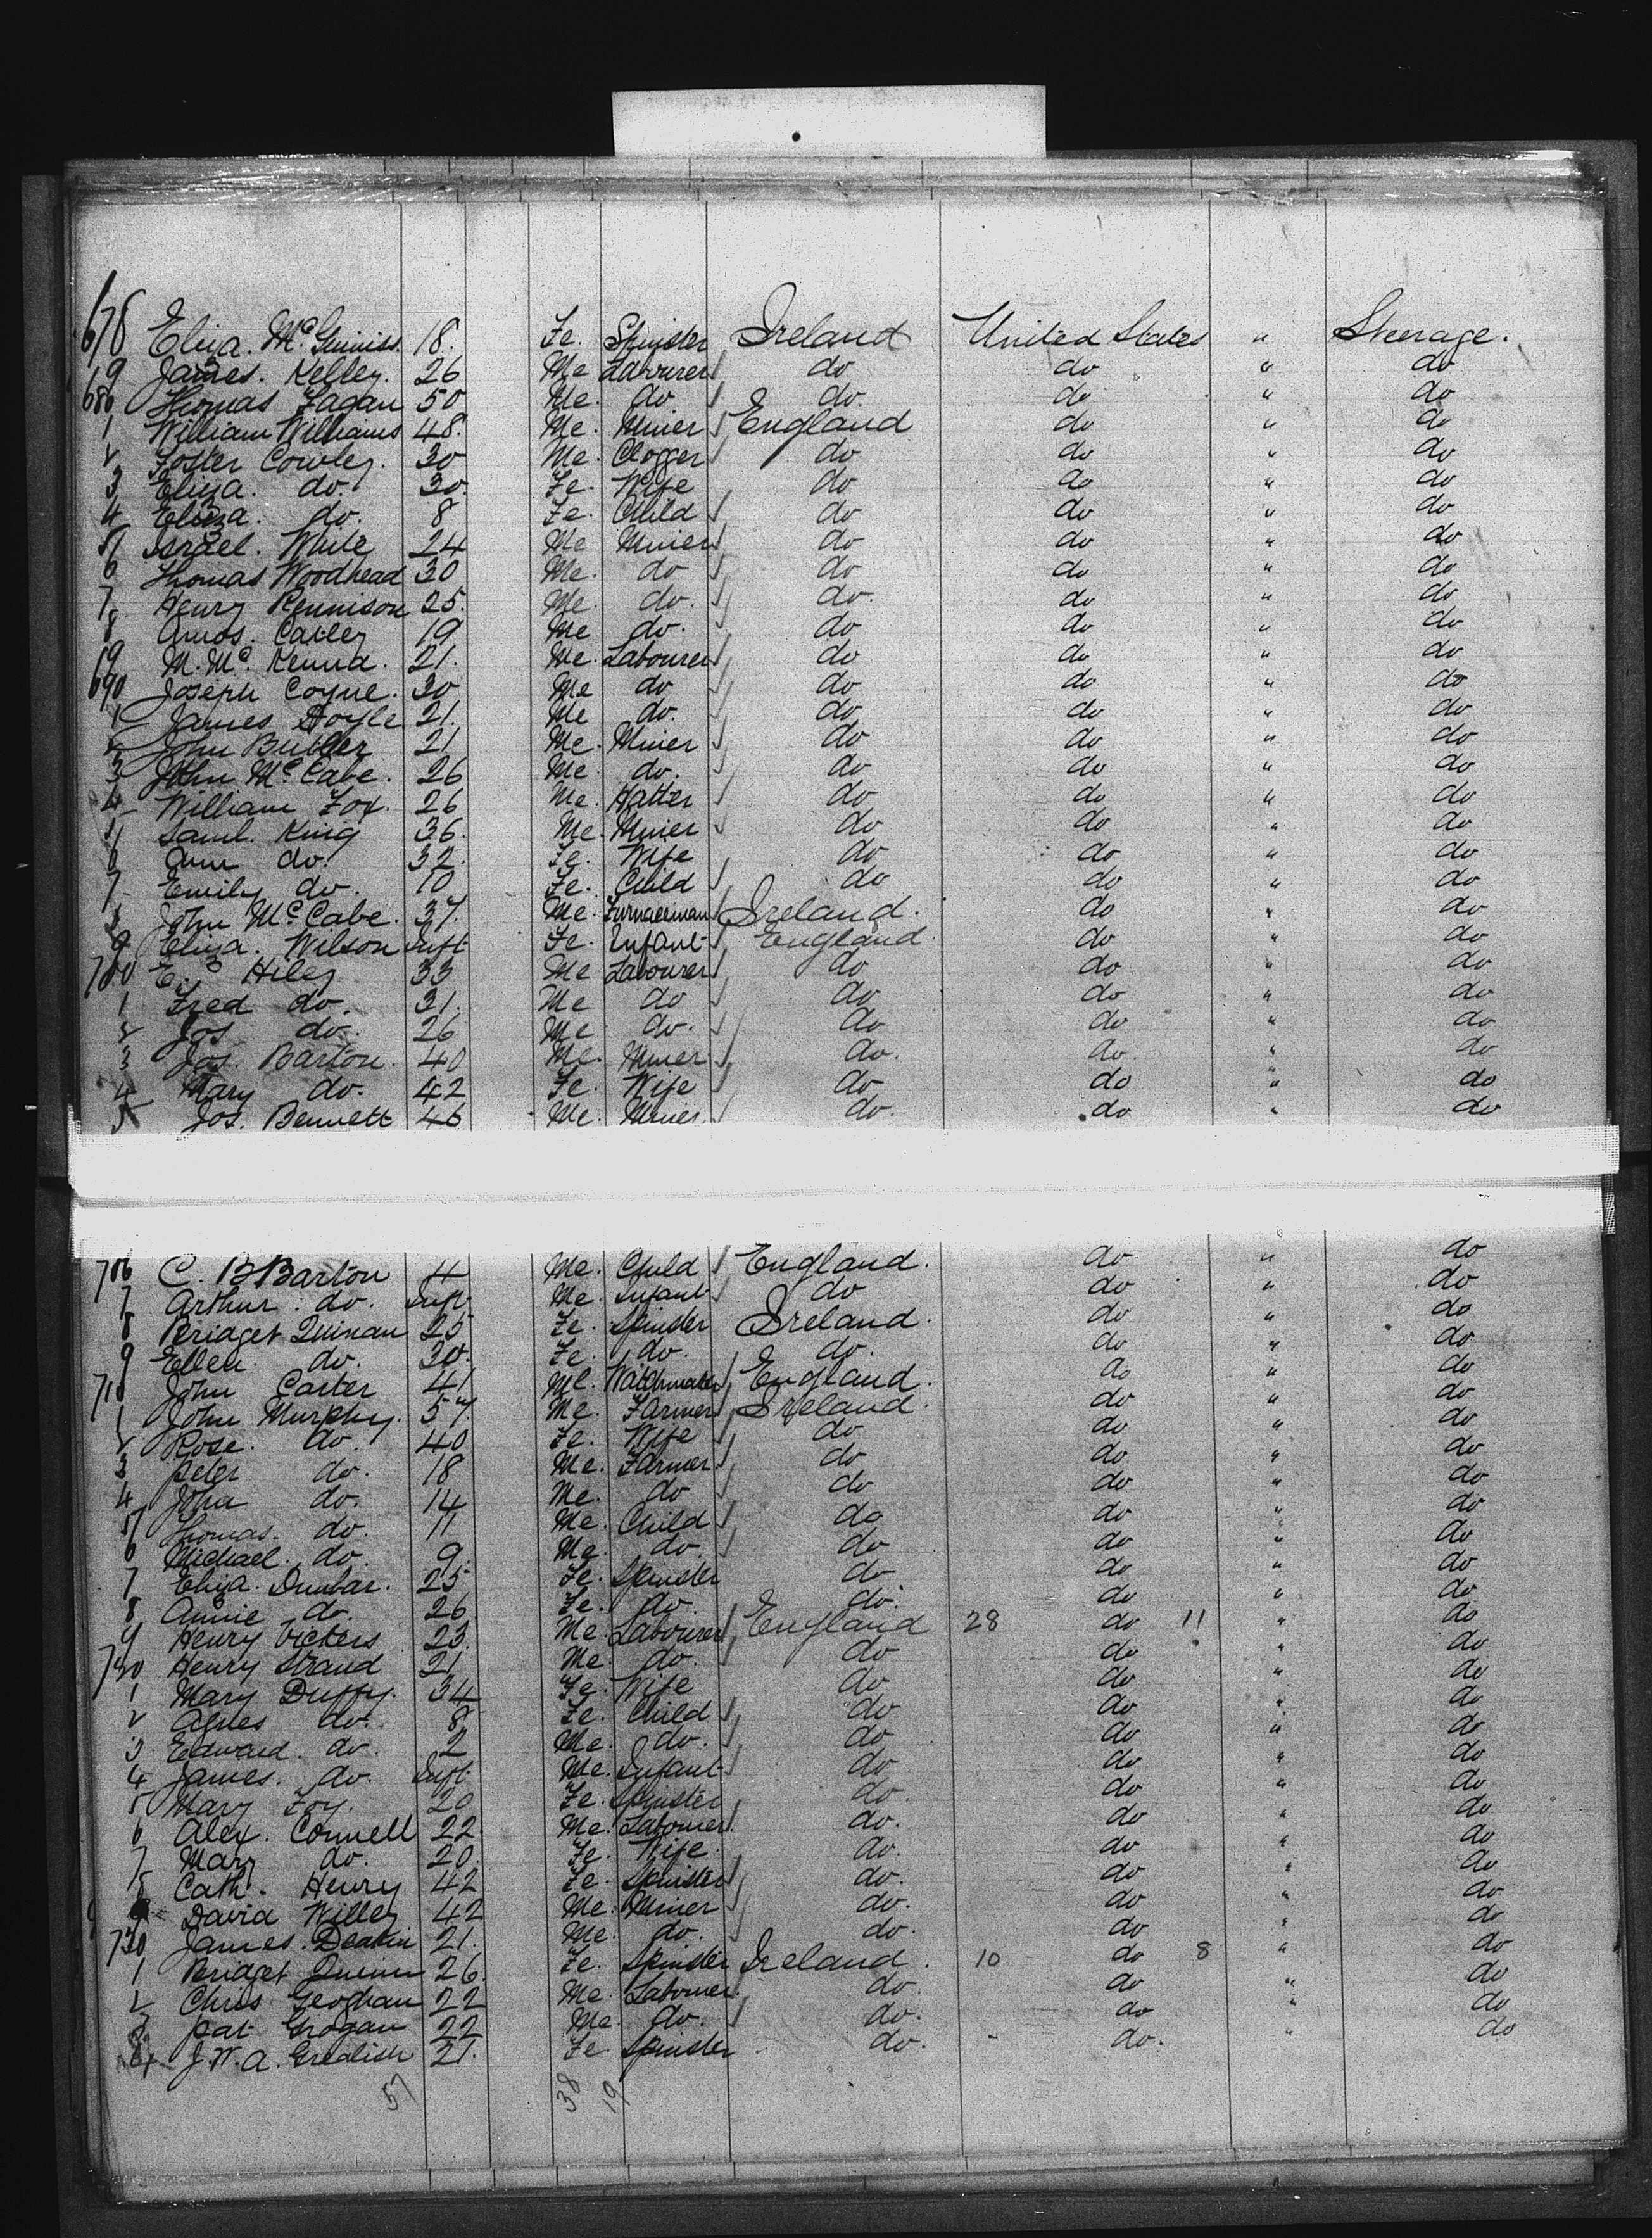 678 Eliza. McGuiniss. 18. Fe. Spinster Ireland United States " Steerage.
19 James. Kelley. 26 Me Labourer do do " do
680 Thomas Fagan 50 Me. do do. do " do
1 William Williams 48. Me. Miner England do " do
2 Foster Cowley. 30 Me. Clogger do do " do
3 Eliza. do. 30. Fe. Wife do do " do
4 Eliza. do. 8 Fe. Child do do " do
5 Israel. White 24 Me Miner do do " do
6 Thomas Woodhead 30 Me. do do do " do
7 Henry Rennison 25. Me. do. do. do " do
8 Amos. Catley 19 Me do. do do " do
19 M. Mc. Kenna. 21. Me. Labourer do do " do
690 Joseph Coyne. 30 Me do do do " do
1 James Doyle 21. Me do. do do " do
2 John Butler 21 Me. Miner do do " do
3 John McCabe. 26 Me. do. do do " do
4 William Fox. 26 Me. Hatter do do " do
5 Saml. King 36. Me. Miner do do " do
6 Ann do. 32. Fe. Wife do do " do
7 Emily do. 10 Fe. Child do do " do
8 John McCabe. 37. Me. Furnaceman Ireland. do " do
9 Eliza. Wilson Inft Fe. Infant England. do " do
700 E. Hiley 33 Me Labourer do do " do
1 Fred do. 31. Me do do do " do
2 Jos do. 26 Me do. do do " do
3 Jos. Barton. 40 Me. Miner do. do. " do
4 Mary do. 42 Fe. Wife do do " do
5 Jos. Bennett 46 Me. Miner do. do " do
706 C. B Barton 4 Me. Child England. do " do
7 Arthur. do. Inft Me. Infant do do " do
8 Bridget Quinan 25 Fe. Spinster Ireland. do " do
9 Ellen do. 30. Fe. do. do. do " do
710 John Carter 41 Me. Watchmaker England. do " do
1 John Murphy. 57. Me. Farmer Ireland. do " do
2 Rose. do. 40 Fe. Wife do do " do
3 Peter do. 18 Me. Farmer do do " do
4 John do. 14 Me. do do do " do
5 Thomas. do. 11 Me. Child do do " do
6 Michael. do. 9. Me. do. do do " do
7 Eliza. Dunbar. 25 Fe. Spinster do do " do
8 Annie do. 26 Fe. do. do. do " do
9 Henry Vickers 23. Me. Labourer England 28 do 11 " do
720 Henry Strand 21 Me do. do do " do
1 Mary Duffy. 34 Fe. Wife do do " do
2 Agnes do. 8 Fe. Child do do " do
3 Edward. do. 2 Me. do. do do " do
4 James. do. Inft Me. Infant do do " do
5 Mary Foy. 20 Fe. Spinster do. do " do
6 Alex. Connell 22. Me. Labourer do. do " do
7 Mary do. 20. Fe. Wife. do. do " do
8 Cath. Henry 42 Fe. Spinster do. do " do
9 David Willey 42 Me. Miner do. do " do
730 James. Deakin 21. Me. do. do. do " do
1 Bridget Quinn 26. Fe. Spinster Ireland. 10 do 8 " do
2 Chris Geoghan 22 Me. Labourer. do. do " do
3 Pat Grogan 22 Me. do. do. do do
4 J. W. A. Grealish 21. Fe Spinster do. do. " do
57 38 19